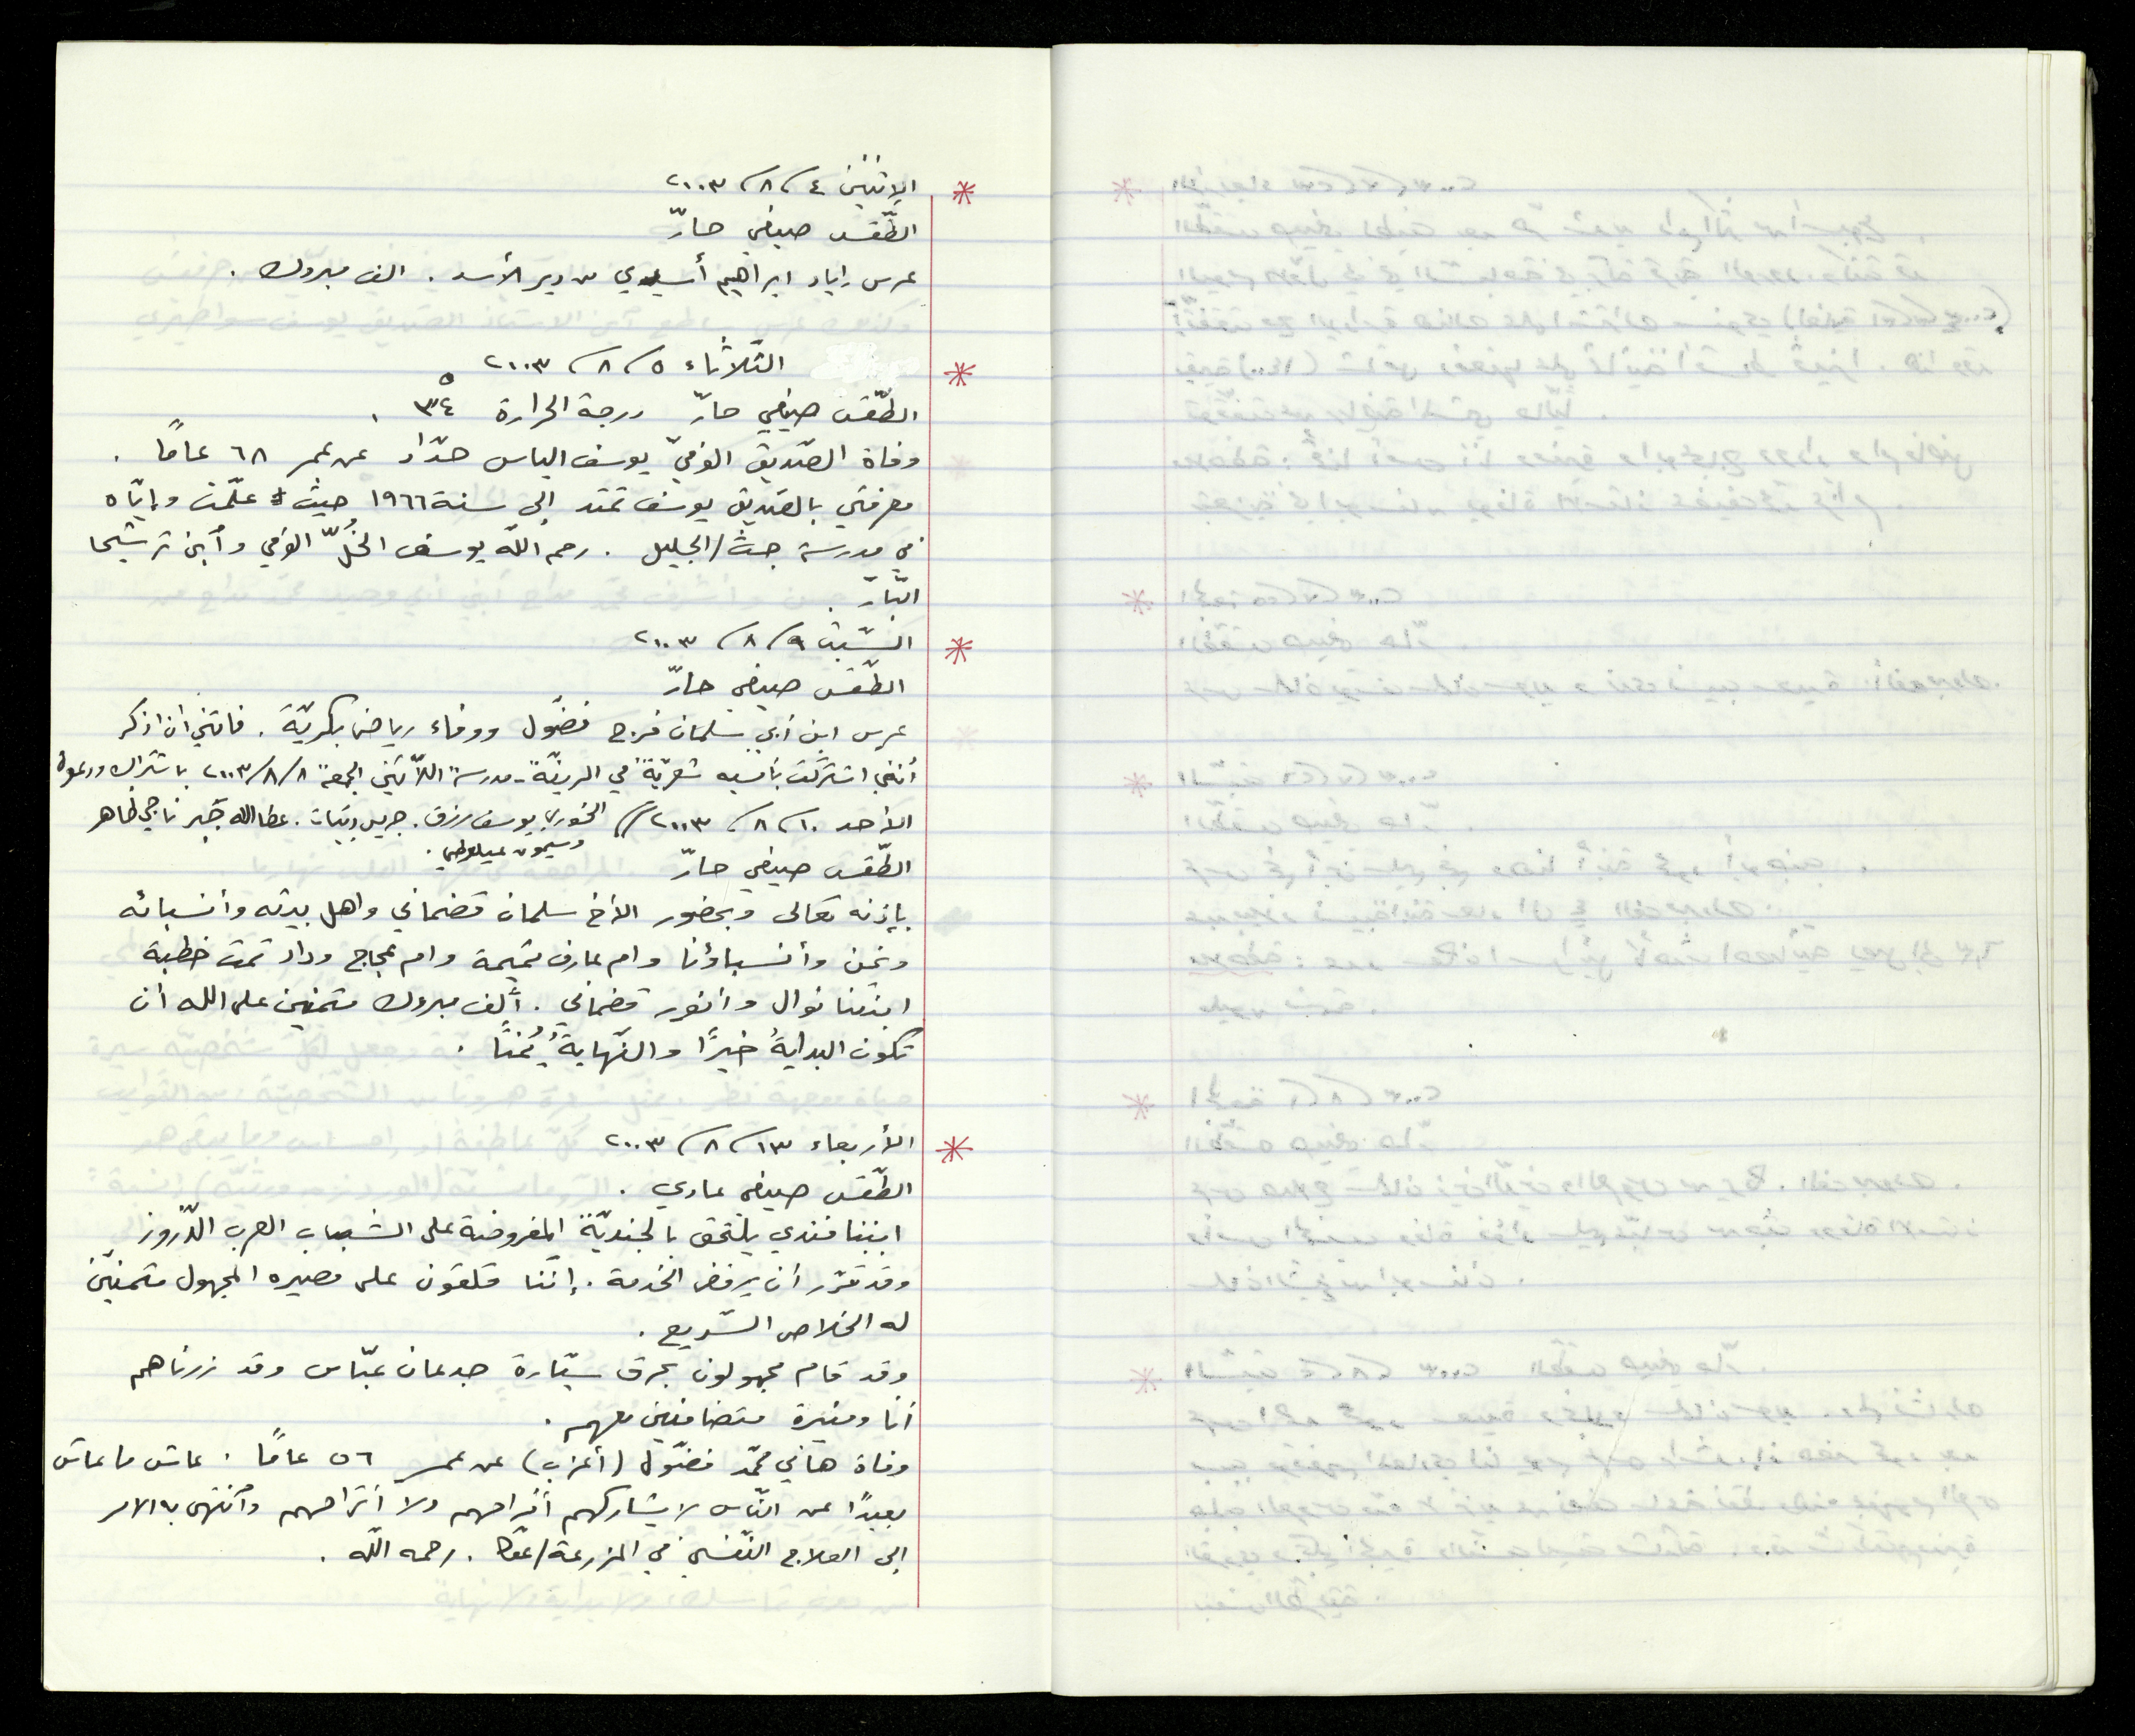 * الإثنين ٤/ ٨/ ٢٠٠٣
الطّقس صيفي حارّ
عرس اياد ابراهيم أسدي من دير الأسد. الف مبروك.
* الثّلاثاء ٥/ ٨/ ٢٠٠٣
الطّقس صيفي حارّ درجة الحرارة ٣٤°.
وفاة الصّديق الوفيّ يوسف الياس حدّاد عن عمر ٦٨ عامًا.
معرفتي بالصّديق يوسف تمتد إلى سنة ١٩٦٦ حيث علّمت وإيّاه
في مدرسة جثّ/الجليل. رحم اللّه يوسف الخلّ الوفي وابن ترشيحا
البّارّ.
* السّبت ٩/ ٨/ ٢٠٠٣
الطّقس صيفي حارّ
عرس ابن أبي سلمان فرج فضّول ووفاء رياض بكريّة. فاتني ان اذكر
أنّني اشتركت بأمسيه شعريّة في الرينة - مدرسة اللّاتين الجمعة ٨/٨/٢٠٠٣ باشتراك ودعوة
الأحد ١٠/ ٨/ ٢٠٠٣// الخوري يوسف رزق. جريس دبيّات. عطاالله جبر ناجي ظاهر
وسيمون عيلوطي.
الطّقس صيفي حارّ
بإذنه تعالى وبحضور الأخ سلمان قضماني واهل بيته وأنسبائه
ونحن وأنسباؤنا وام عارف تميمة وام عجاج وداد تمت خطبة
ابنتنا نوال وأنور قضماني. ألف مبروك متمنين على الله أن
تكون البدايةُ خيرًا والنّهايةُ يُمنًا.
* الأربعاء ١٣/ ٨/ ٢٠٠٣
الطّقس صيفي عادي.
ابننا فندي يلتحق بالجنديّة المفروضة على الشباب العرب الدّروز
وقد قرّر أن يرفض الخدمة. إنّنا قلقون على مصيره المجهول متمنين
له الخلاص السّريع.
وقد قام مجهولون بحرق سيّارة جدعان عبّاس وقد زرناهم
أنا ومنيرة متضامنين معهم.
وفاة هاني محمّد فضّول (أعزب) عن عمر ٥٦ عامًا. عاش ما عاش
بعيدًا عن النّاس لا يشاركهم أفراحهم ولا أتراحهم وانتهى به الامر
إلى العلاج النّفسي في المزرعة/عكّا. رحمه اللّه.